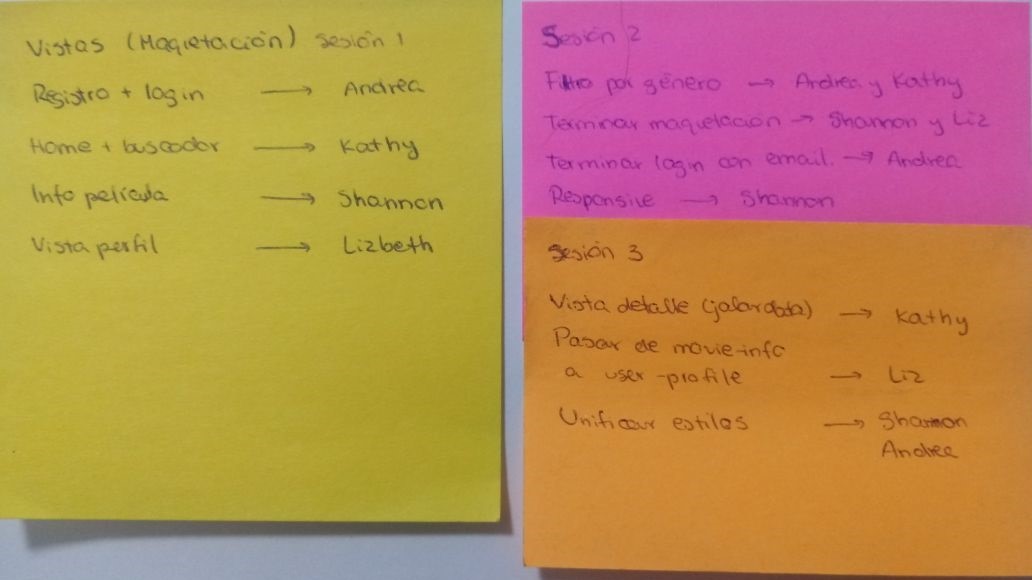 Vistas (Maquetación) Sesión 1
Registro + login → Andrea
Home + buscador → Kathy
Info película → Shannon
Vista perfil → Lizbeth
Sesión 2
Filtro por género → Andrea y Kathy
Terminar maquetación → Shannon y Liz
Terminar login con email. → Andrea
Responsive → Shannon
Sesión 3
Vista detalle (jalar data) → Kathy
Pasar de movie-info
a user-profile → Liz
Unificar estilos → Shannon
Andrea